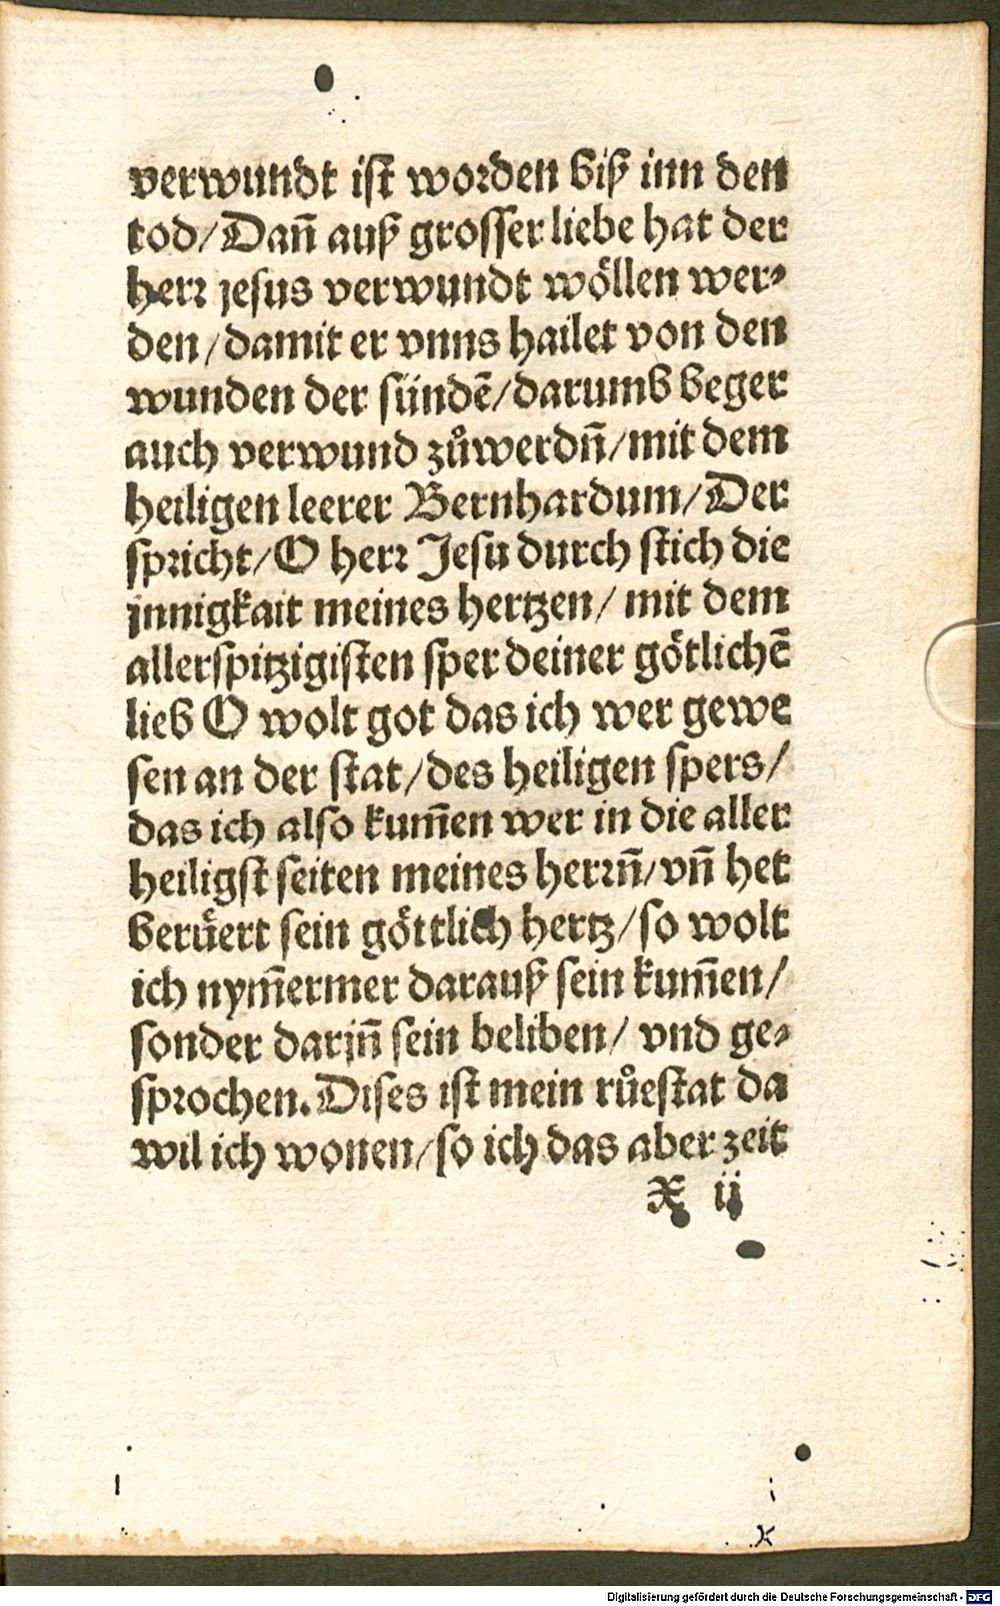 verwundt ist worden biß inn den
tod/Dañ auß grosser liebe hat der
herr jesus verwundt wöllen wer⸗
den/damit er vnns hailet von den
wunden der sündē/darumb beger
auch verwund zůwerdñ/mit dem
heiligen leerer Bernhardum/Der
spricht/O herr Jesu durch stich die
jnnigkait meines hertzen/ mit dem
allerspitzigisten sper deiner götlichē
lieb O wolt got das ich wer gewe
sen an der stat/des heiligen spers/
das ich also kum̄en wer in die aller
heiligst seiten meines herrñ/vñ het
berüert sein göttlich hertz/so wolt
ich nym̄ermer darauß sein kum̄en/
sonder darjñ sein beliben/ vnd ge⸗
sprochen.Dises ist mein růestat da
wil ich wonen/so ich das aber zeit
X ij
Digitalisierung gefördert durch die Deutsche Forschungsgemeinschaft - DFG